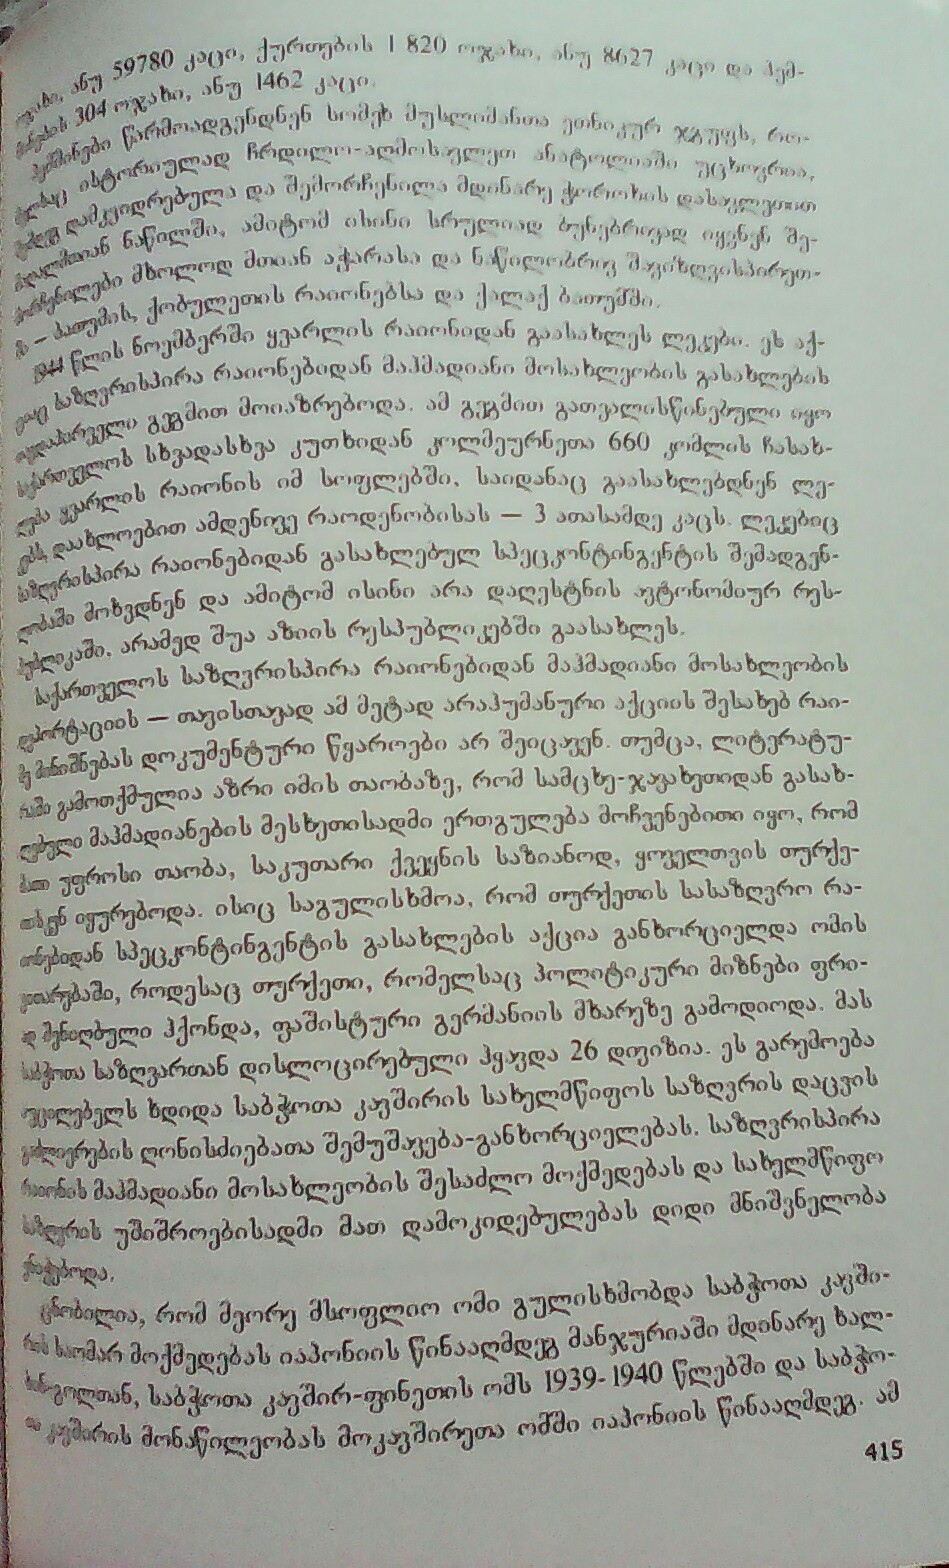 ოჯახი, ანუ 59780 კაცი, ქურთების 1 820 ოჯახი, ანუ 8627 კაცი და ჰემ-
შინების 304 ოჯახი, ანუ 1462 კაცი.
ჰემშინები წარმოადგენდნენ სომეხ მუსლიმანთა ეთნიკურ ჯგუფს, რო-
მელსაც ისტორიულად ჩრდილო-აღმოსავლეთ ანატოლიაში უცხოვრია,
დამკვიდრებულა და შემორჩენილა მდინარე ჭოროხის დასავლეთით
მაღალმთიან ნაწილში, ამიტომ ისინი სრულიად ბუნებრივად იყვნენ შე-
მორჩენილები მხოლოდ მთიან აჭარასა და ნაწილობრივ შავიზღვისპირეთ-
ში – ბათუმის, ქობულეთის რაიონებსა და ქალაქ ბათუმში.
1944 წლის ნოემბერში ყვარლის რაიონიდან გაასახლეს ლეკები. ეს აქ-
ციაც საზღვრისპირა რაიონებიდან მაჰმადიანი მოსახლეობის გასახლების
თავდაპირველი გეგმით მოიაზრებოდა. ამ გეგმით გათვალისწინებული იყო
საქართველოს სხვადასხვა კუთხიდან კოლმეურნეთა 660 კომლის ჩასახ-
ლება ყვარლის რაიონის იმ სოფლებში, საიდანაც გაასახლებდნენ ლე-
კებს, დაახლოებით ამდენივე რაოდენობისას — 3 ათასამდე კაცს. ლეკებიც
საზღვრისპირა რაიონებიდან გასახლებულ სპეცკონტინგენტის შემადგენ-
ლობაში მოხვდნენ და ამიტომ ისინი არა დაღესტნის ავტონომიურ რეს-
პუბლიკაში, არამედ შუა აზიის რესპუბლიკებში გაასახლეს.
საქართველოს საზღვრისპირა რაიონებიდან მაჰმადიანი მოსახლეობის
დეპორტაციის — თავისთავად ამ მეტად არაჰუმანური აქციის შესახებ რაი-
მე მინიშნებას დოკუმენტური წყაროები არ შეიცავენ. თუმცა, ლიტერატუ-
რაში გამოთქმულია აზრი იმის თაობაზე, რომ სამცხე-ჯავახეთიდან გასახ-
ლებული მაჰმადიანების მესხეთისადმი ერთგულება მოჩვენებითი იყო, რომ
მათი უფროსი თაობა, საკუთარი ქვეყნის საზიანოდ, ყოველთვის თურქე-
თისკენ იყურებოდა. ისიც საგულისხმოა, რომ თურქეთის სასაზღვრო რა-
იონებიდან სპეცკონტინგენტის გასახლების აქცია განხორციელდა ომის
ვითარებაში, როდესაც თურქეთი, რომელსაც პოლიტიკური მიზნები ფრი-
ად შენიღბული ჰქონდა, ფაშისტური გერმანიის მხარეზე გამოდიოდა. მას
საბჭოთა საზღვართან დისლოცირებული ჰყავდა 26 დივიზია. ეს გარემოება
აუცილებელს ხდიდა საბჭოთა კავშირის სახელმწიფოს საზღვრის დაცვის
გაძლიერების ღონისძიებათა შემუშავება-განხორციელებას. საზღვრისპირა
რაიონის მაჰმადიანი მოსახლეობის შესაძლო მოქმედებას და სახელმწიფო
საზღვრის უშიშროებისადმი მათ დამოკიდებულებას დიდი მნიშვნელობა
ენიჭებოდა.
ცნობილია, რომ მეორე მსოფლიო ომი გულისხმობდა საბჭოთა კავში-
რის საომარ მოქმედებას იაპონიის წინააღმდეგ მანჯურიაში მდინარე ხალ-
ხინ-გოლთან, საბჭოთა კავშირ-ფინეთის ომს 1939-1940 წლებში და საბჭო-
თა კავშირის მონაწილეობას მოკავშირეთა ომში იაპონიის წინააღმდეგ. ამ
415